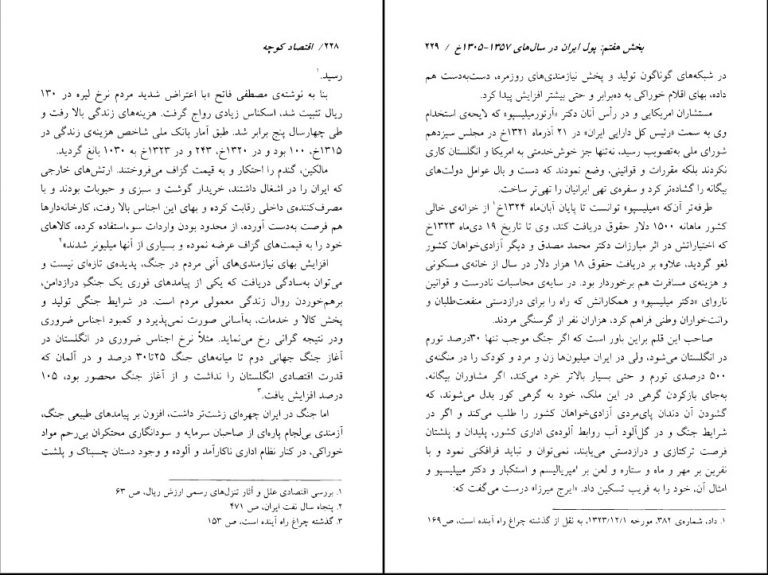 ۲۲۸/ اقتصاد کوچه
رسید.۱
بنا به نوشته‌ی مصطفی فاتح «با اعتراض شدید مردم نرخ لیره در ۱۳۰
ریال تثبیت شد، اسکناس زیادی رواج گرفت. هزینه‌های زندگی بالا رفت و
طی چهارسال پنج برابر شد. طبق آمار بانک ملی شاخص هزینه‌ی زندگی در
۱۳۱۵خ، ۱۰۰ بود و در ۱۳۲۰خ، ۲۴۳ و در ۱۳۲۳خ به ۱۰۳۰ بالغ گردید.
مالکین، گندم را احتکار و به قیمت گزاف می‌فروختند. ارتش‌های خارجی
که ایران را در اشغال داشتند، خریدار گوشت و سبزی و حبوبات بودند و با
مصرف‌کننده‌ی داخلی رقابت کرده و بهای این اجناس بالا رفت، کارخانه‌دارها
هم فرصت به‌دست آورده، از محدود بودن واردات سوءاستفاده کرده، کالاهای
خود را به قیمت‌های گزاف عرضه نموده و بسیاری از آنها میلیونر شدند»۲
افزایش بهای نیازمندی‌های آنی مردم در جنگ، پدیده‌ی تازه‌ای نیست و
می‌توان به‌سادگی دریافت که یکی از پیامدهای فوری یک جنگ درازدامن،
برهم‌خوردن روال زندگی معمولی مردم است. در شرایط جنگی تولید و
پخش کالا و خدمات، به‌آسانی صورت نمی‌پذیرد و کمبود اجناس ضروری
ودر نتیجه گرانی رخ می‌نماید. مثلاً نرخ اجناس ضروری در انگلستان در
آغاز جنگ جهانی دوم تا میانه‌های جنگ ۲۵تا۳۰ درصد و در آلمان که
قدرت اقتصادی انگلستان را نداشت و از آغاز جنگ محصور بود، ۱۰۵
درصد افزایش یافت.۳
اما جنگ در ایران چهره‌ای زشت‌تر داشت، افزون بر پیامدهای طبیعی جنگ،
آزمندی بی‌لجام پاره‌ای از صاحبان سرمایه و سوداگاری محتکران بی‌رحم مواد
خوراکی، در کنار نظام اداری ناکارآمد و آلوده و وجود دستان چسبناک و پلشت
۱. بررسی اقتصادی علل و آثار تنزل‌های رسمی ارزش ریال، ص ۶۳
۲. پنجاه سال نفت ایران، ص ۴۷۱
۳. گذشته چراغ راه آینده است، ص ۱۵۳
بخش هفتم: پول ایران در سال‌های ۱۳۵۷-۱۳۰۵خ / ۲۲۹
در شبکه‌های گوناگون تولید و پخش نیازمندی‌های روزمره، دست‌به‌دست هم
داده، بهای اقلام خوراکی به ده‌برابر و حتی بیشتر افزایش پیدا کرد.
مستشاران امریکایی و در رأس آنان دکتر «آرتورمیلیسپو» که لایحه‌ی استخدام
وی به سمت «رئیس کل دارایی ایران» در ۲۱ آذرماه ۱۳۲۱خ در مجلس سیزدهم
شورای ملی به‌تصویب رسید، نه‌تنها جز خوش‌خدمتی به امریکا و انگلستان کاری
نکردند بلکه مقررات و قوانینی، وضع نمودند که دست و بال عوامل دولت‌های
بیگانه را گشاده‌تر کرد و سفره‌ی تهی ایرانیان را تهی‌تر ساخت.
طرفه‌تر آن‌که «میلیسپو» توانست تا پایان آبان‌ماه ۱۳۲۴خ۱ از خزانه‌ی خالی
کشور ماهانه ۱۵۰۰ دلار حقوق دریافت کند، وی تا تاریخ ۱۹ دی‌ماه ۱۳۲۳خ
که اختیاراتش در اثر مبارزات دکتر محمد مصدق و دیگر آزادی‌خواهان کشور
لغو گردید، علاوه بر دریافت حقوق ۱۸ هزار دلار در سال از خانه‌ی مسکونی
و هزینه‌ی مسافرت هم برخوردار بود. در سایه‌ی محاسبات نادرست و قوانین
ناروای «دکتر میلیسپو» و همکارانش که راه را برای درازدستی منفعت‌طلبان و
رانت‌خواران وطنی فراهم کرد، هزاران نفر از گرسنگی مردند.
صاحب این قلم براین باور است که اگر جنگ موجب تنها ۳۰درصد تورم
در انگلستان می‌شود، ولی در ایران میلیون‌ها زن و مرد و کودک را در منگنه‌ی
۵۰۰ درصدی تورم و حتی بسیار بالاتر خرد می‌کند، اگر مشاوران بیگانه،
به‌جای بازکردن گرهی در این ملک، خود به گرهی کور بدل می‌شوند، که
گشودن آن دندان پای‌مردی آزادی‌خواهان کشور را طلب می‌کند و اگر در
شرایط جنگ و در گل‌آلود آب روابط آلوده‌ی اداری کشور، پلیدان و پلشتان
فرصت ترکتازی و درازدستی می‌یابند، نمی‌توان و نباید فرافکنی نمود و با
نفرین بر مهر و ماه و ستاره و لعن بر امپریالیسم و استکبار و دکتر میلیسپو و
امثال آن، خود را به فریب تسکین داد. «ایرج میرزا» درست می‌گفت که:
۱. داد، شماره‌ی ۳۸۲، مورخه ۱۳۲۳/۱۲/۱، به نقل از گذشته چراغ راه آینده است، ص۱۶۹